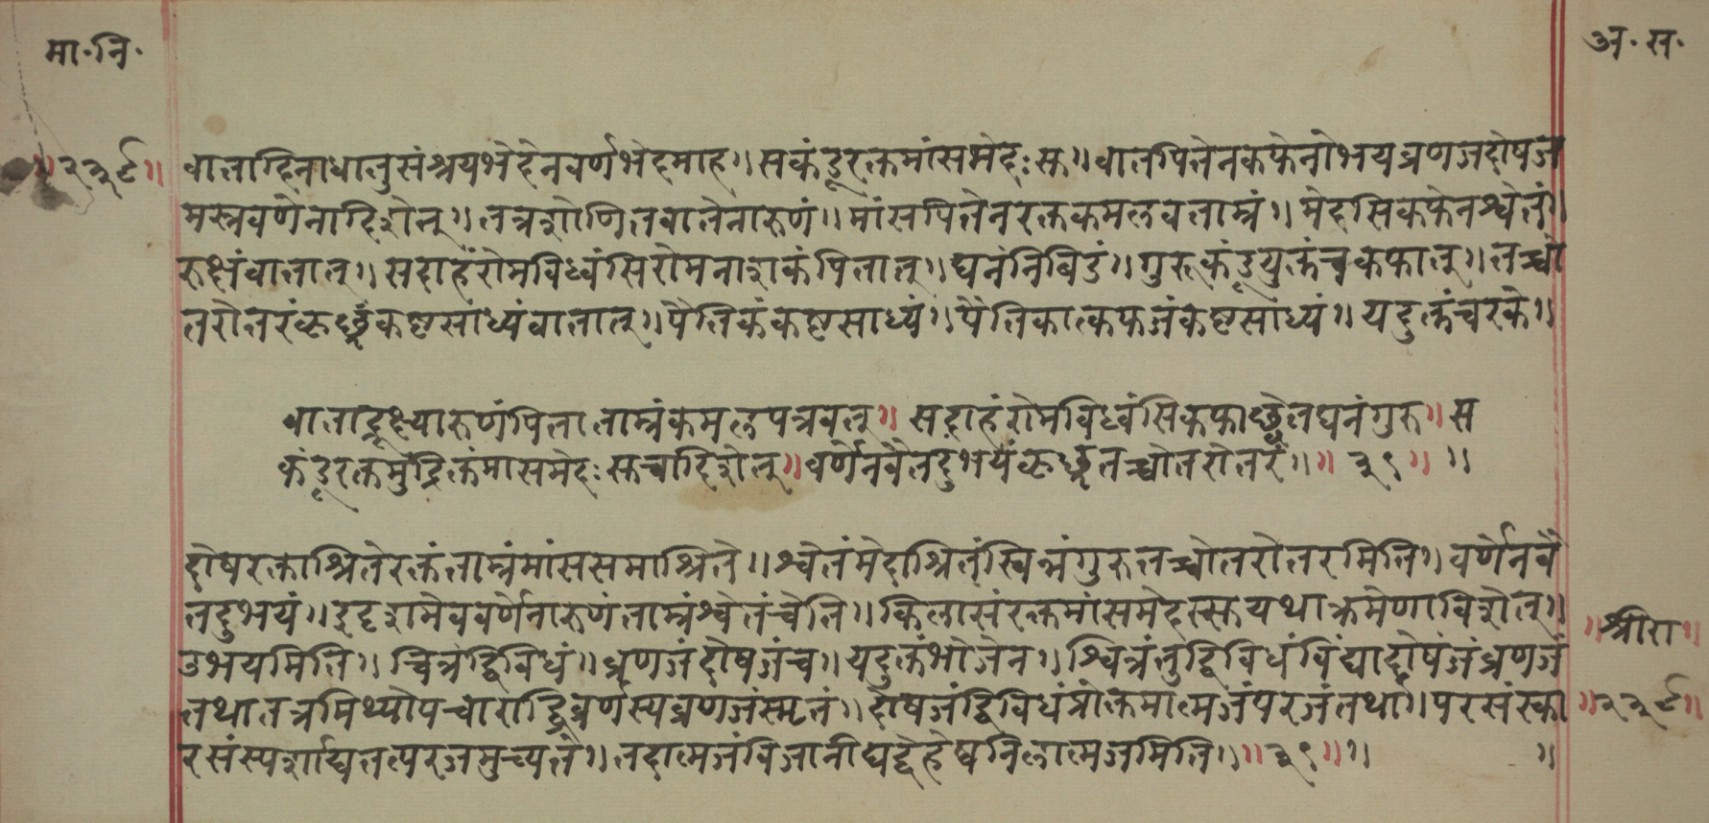 मा॰नि॰
अ॰स॰
॥२२९॥ वाताग्दिनाधातुसंश्रयभेदेनवर्णभेदमाह॥ सकंडूरक्तमांसमेदःसु॥ वातपित्तेनकफेनोभयव्रणजदोषज
मस्त्रवर्णेनादिशेत्॥ तत्रशोणितवातेनारुणं॥ मांसपित्तेनरक्तकमलवताम्रं॥ मेदसिकफेनश्वेतं॥
रुक्षंवातात्॥ सदाहंरोमविध्वंसिरोमनाशकंपित्तात्॥ घनंनिबिडं॥ गुरुकंडूयुक्तंचकफात्॥ तच्चो
त्तरोत्तरंकृछ्रंकष्टसाध्यंवातात्॥ पैत्तिकंकष्टसाध्यं॥ पैत्तिकात्कफजंकष्टसाध्यं॥ यदुक्तंचरके॥
वाताद्रूक्ष्यारुणंपित्तात्ताम्रंकमलपत्रवत्॥ सदाहंरोमविध्वंसिकफाछ्वेतघनंगुरु॥ स
कंडूरक्तमुद्रिक्तंमासमेदःसुचादिशेत्॥ वर्णेनवैतदुभयंकृछ्रंतच्चोत्तरोत्तरं॥॥ ३९॥ ॥
दोषरक्ताश्रितेरक्तंताम्रंमांससमाश्रिते॥ श्वेतंमेदाश्रितंस्विन्नंगुरुतच्चोत्तरोत्तरमिति॥ वर्णेनवै
तदुभयं॥ इदृशमेववर्णेनारुणंताम्रंश्वेतंचेति॥ किलासंरक्तमांसमेदस्सुयथाक्रमेणाविशेत्॥
उभयमिति॥ श्वित्रंद्विविधं॥ व्रणजंदोषजंच॥ यदुक्तंभोजेन॥ श्वित्रंतुद्विविधंविद्याद्दोषजंव्रणजं
॥श्रीरा॥
तथातत्रमिथ्योपचाराद्धिव्रणस्यव्रणजंस्मृतं॥ दोषजंद्विविधंप्रोक्तमात्मजंपरजंतथा॥ परसंस्का
॥२२९॥
रसंस्पर्शाद्यत्तत्परजमुच्यते॥ तदात्मजंविजानीयद्देहेष्वनिलात्मजमिति॥॥ ३९॥॥ ॥